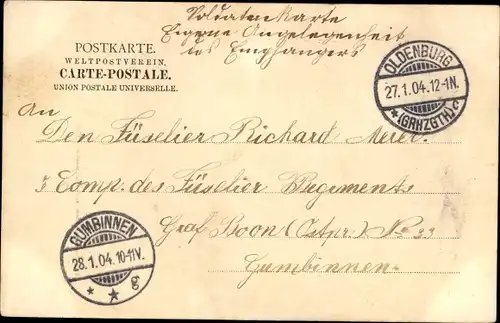 Soldatenkarte
Eigene Angelegenheit
des Empfängers
POSTKARTE.
WELTPOSTVEREIN.
CARTE-POSTALE.
UNION POSTALE UNIVERSELLE.
OLDENBURG
27.1.04.12-1N.
*(GRHZGTH.)
An
Den Füselier Richard
Comp. des Füselier Regiments
Graf Roon (Ostpr.) No 33
Gumbinnen
GUMBINNEN
28.1.04.10-11V.
* * g